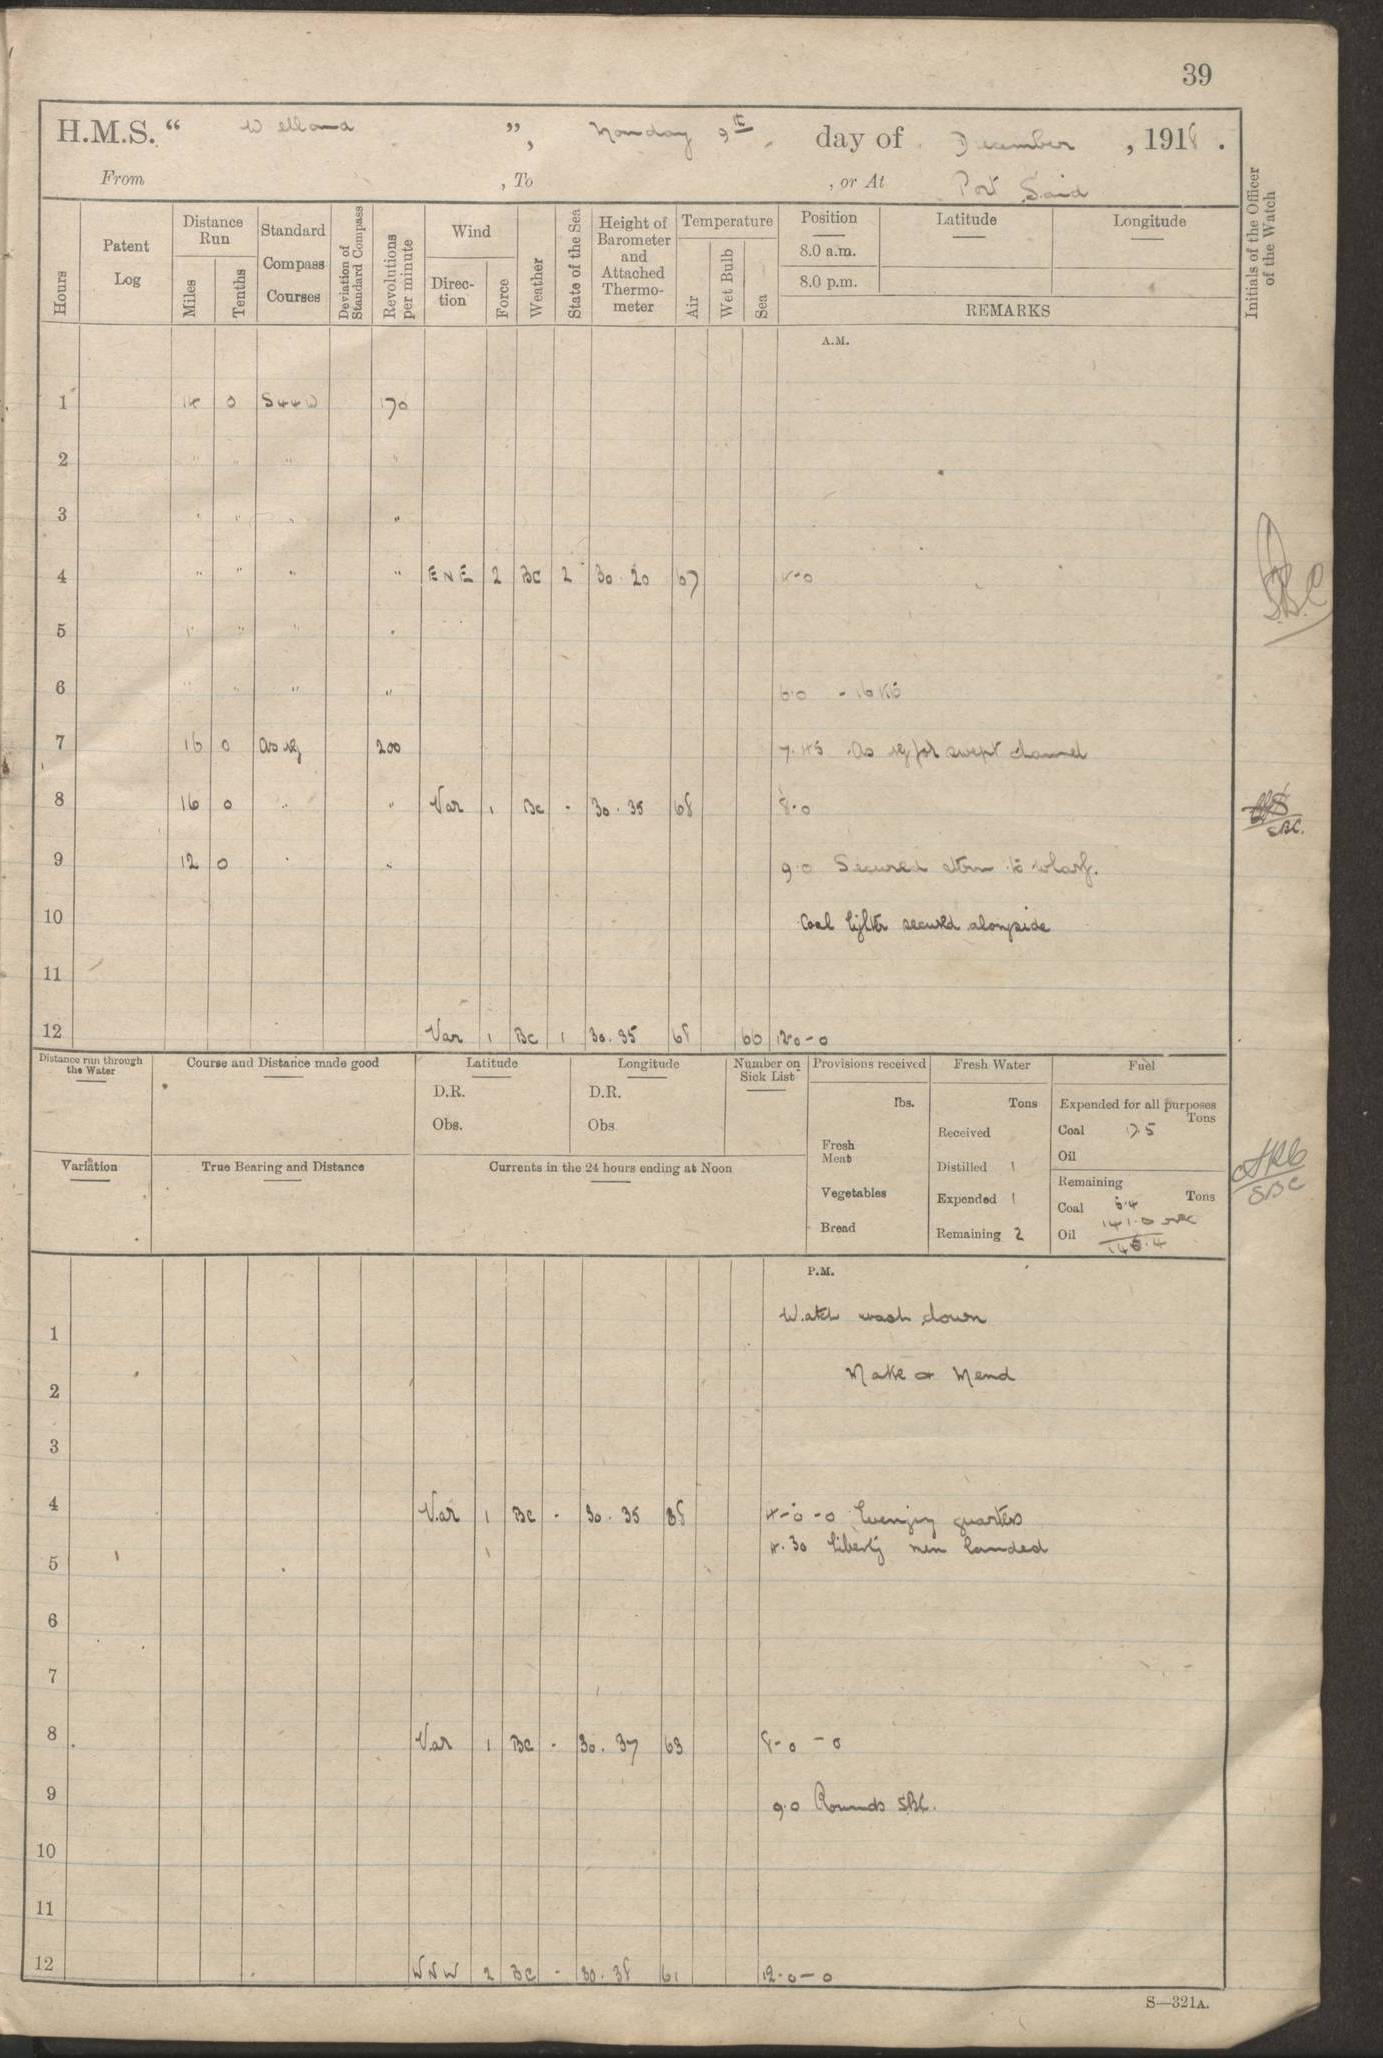 39
H.M.S. "Welland", Monday 9th day of December, 1918.
From , To , or At Port Said
Hours
Patent Log
Distance Run
Miles
Tenths
Standard Compass Courses
Deviation of Standard Compass
Revolutions per minute
Wind
Direction
Force
Weather
State of the Sea
Height of Barometer and Attached Thermometer
Temperature
Air
Wet Bulb
Sea
Position
8.0 a.m.
8.0 p.m.
Latitude
Longitude
REMARKS
Initials of the Officer of the Watch
A.M.
1 14 0 S44W 170
2 " " " "
3 " " " "
4 " " " " ENE 2 BC 2 30.20 67 4-0
SBC
5 " " " "
6 " " " " 6.0 - 16 Kts
7 16 0 as req 200 7.45 As req for swept channel
8 16 0 " " Var 1 Bc - 30.35 68 8.0
SBC.
9 12 0 " " 9.0 Secured stern to wharf.
10 Coal lighter secured alongside
11
12 Var 1 BC 1 30.35 68 66 12-0-0
Distance run through the Water
Course and Distance made good
Latitude
D.R.
Obs.
Longitude
D.R.
Obs
Number on Sick List
Provisions received
lbs.
Fresh Meat
Vegetables
Bread
Fresh Water
Tons
Received
Distilled 1
Expended 1
Remaining 2
Fuel
Expended for all purposes
Tons
Coal 17.5
Oil
Remaining
Coal 5.4 Tons
Oil 141.0 rec
146.4
SBC
Variation
True Bearing and Distance
Currents in the 24 hours ending at Noon
P.M.
1 Watch wash down
2 Make & Mend
3
4 Var 1 BC - 30.35 68 4-0-0 Evening quarters
4.30 liberty men landed
5
6
7
8 Var 1 BC - 30.37 63 8-0-0
9 9.0 Rounds SBC.
10
11
12 WNW 2 BC - 30.38 61 12.0-0
S—321A.